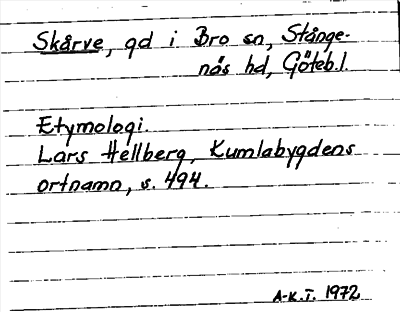 Skårve, gd i Bro sn, Stånge-
näs hd, Göteb.l.
Etymologi.
Lars Hellberg, Kumlabygdens
ortnamn, s. 494.
A-K.I. 1972